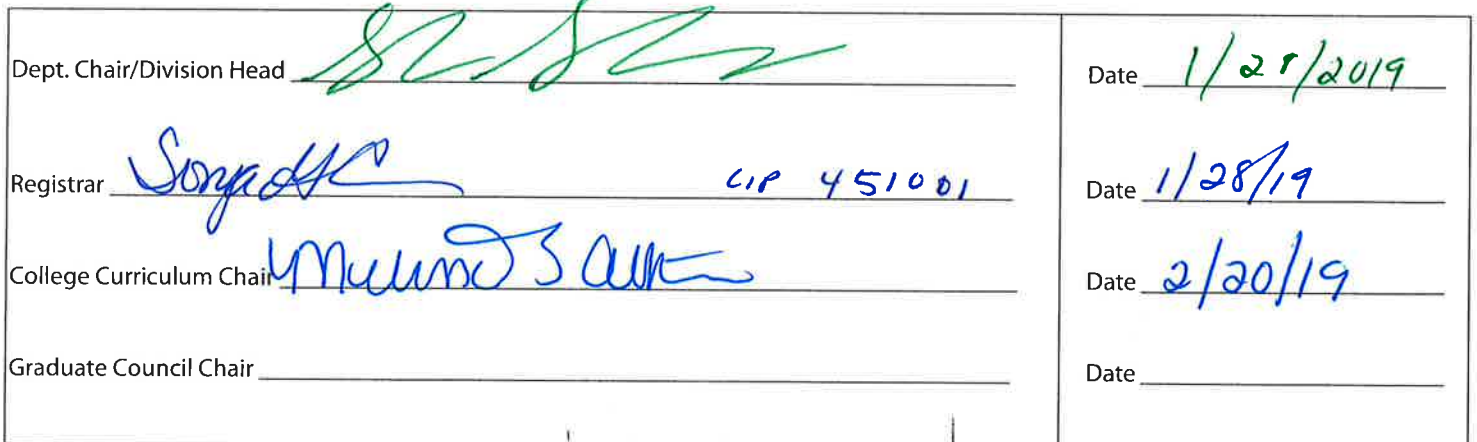 Dept. Chair/Division Head Date 1/28/2019
Registrar Sonya CIP 451001 Date 1/28/19
College Curriculum Chair Date 2/20/19
Graduate Council Chair Date